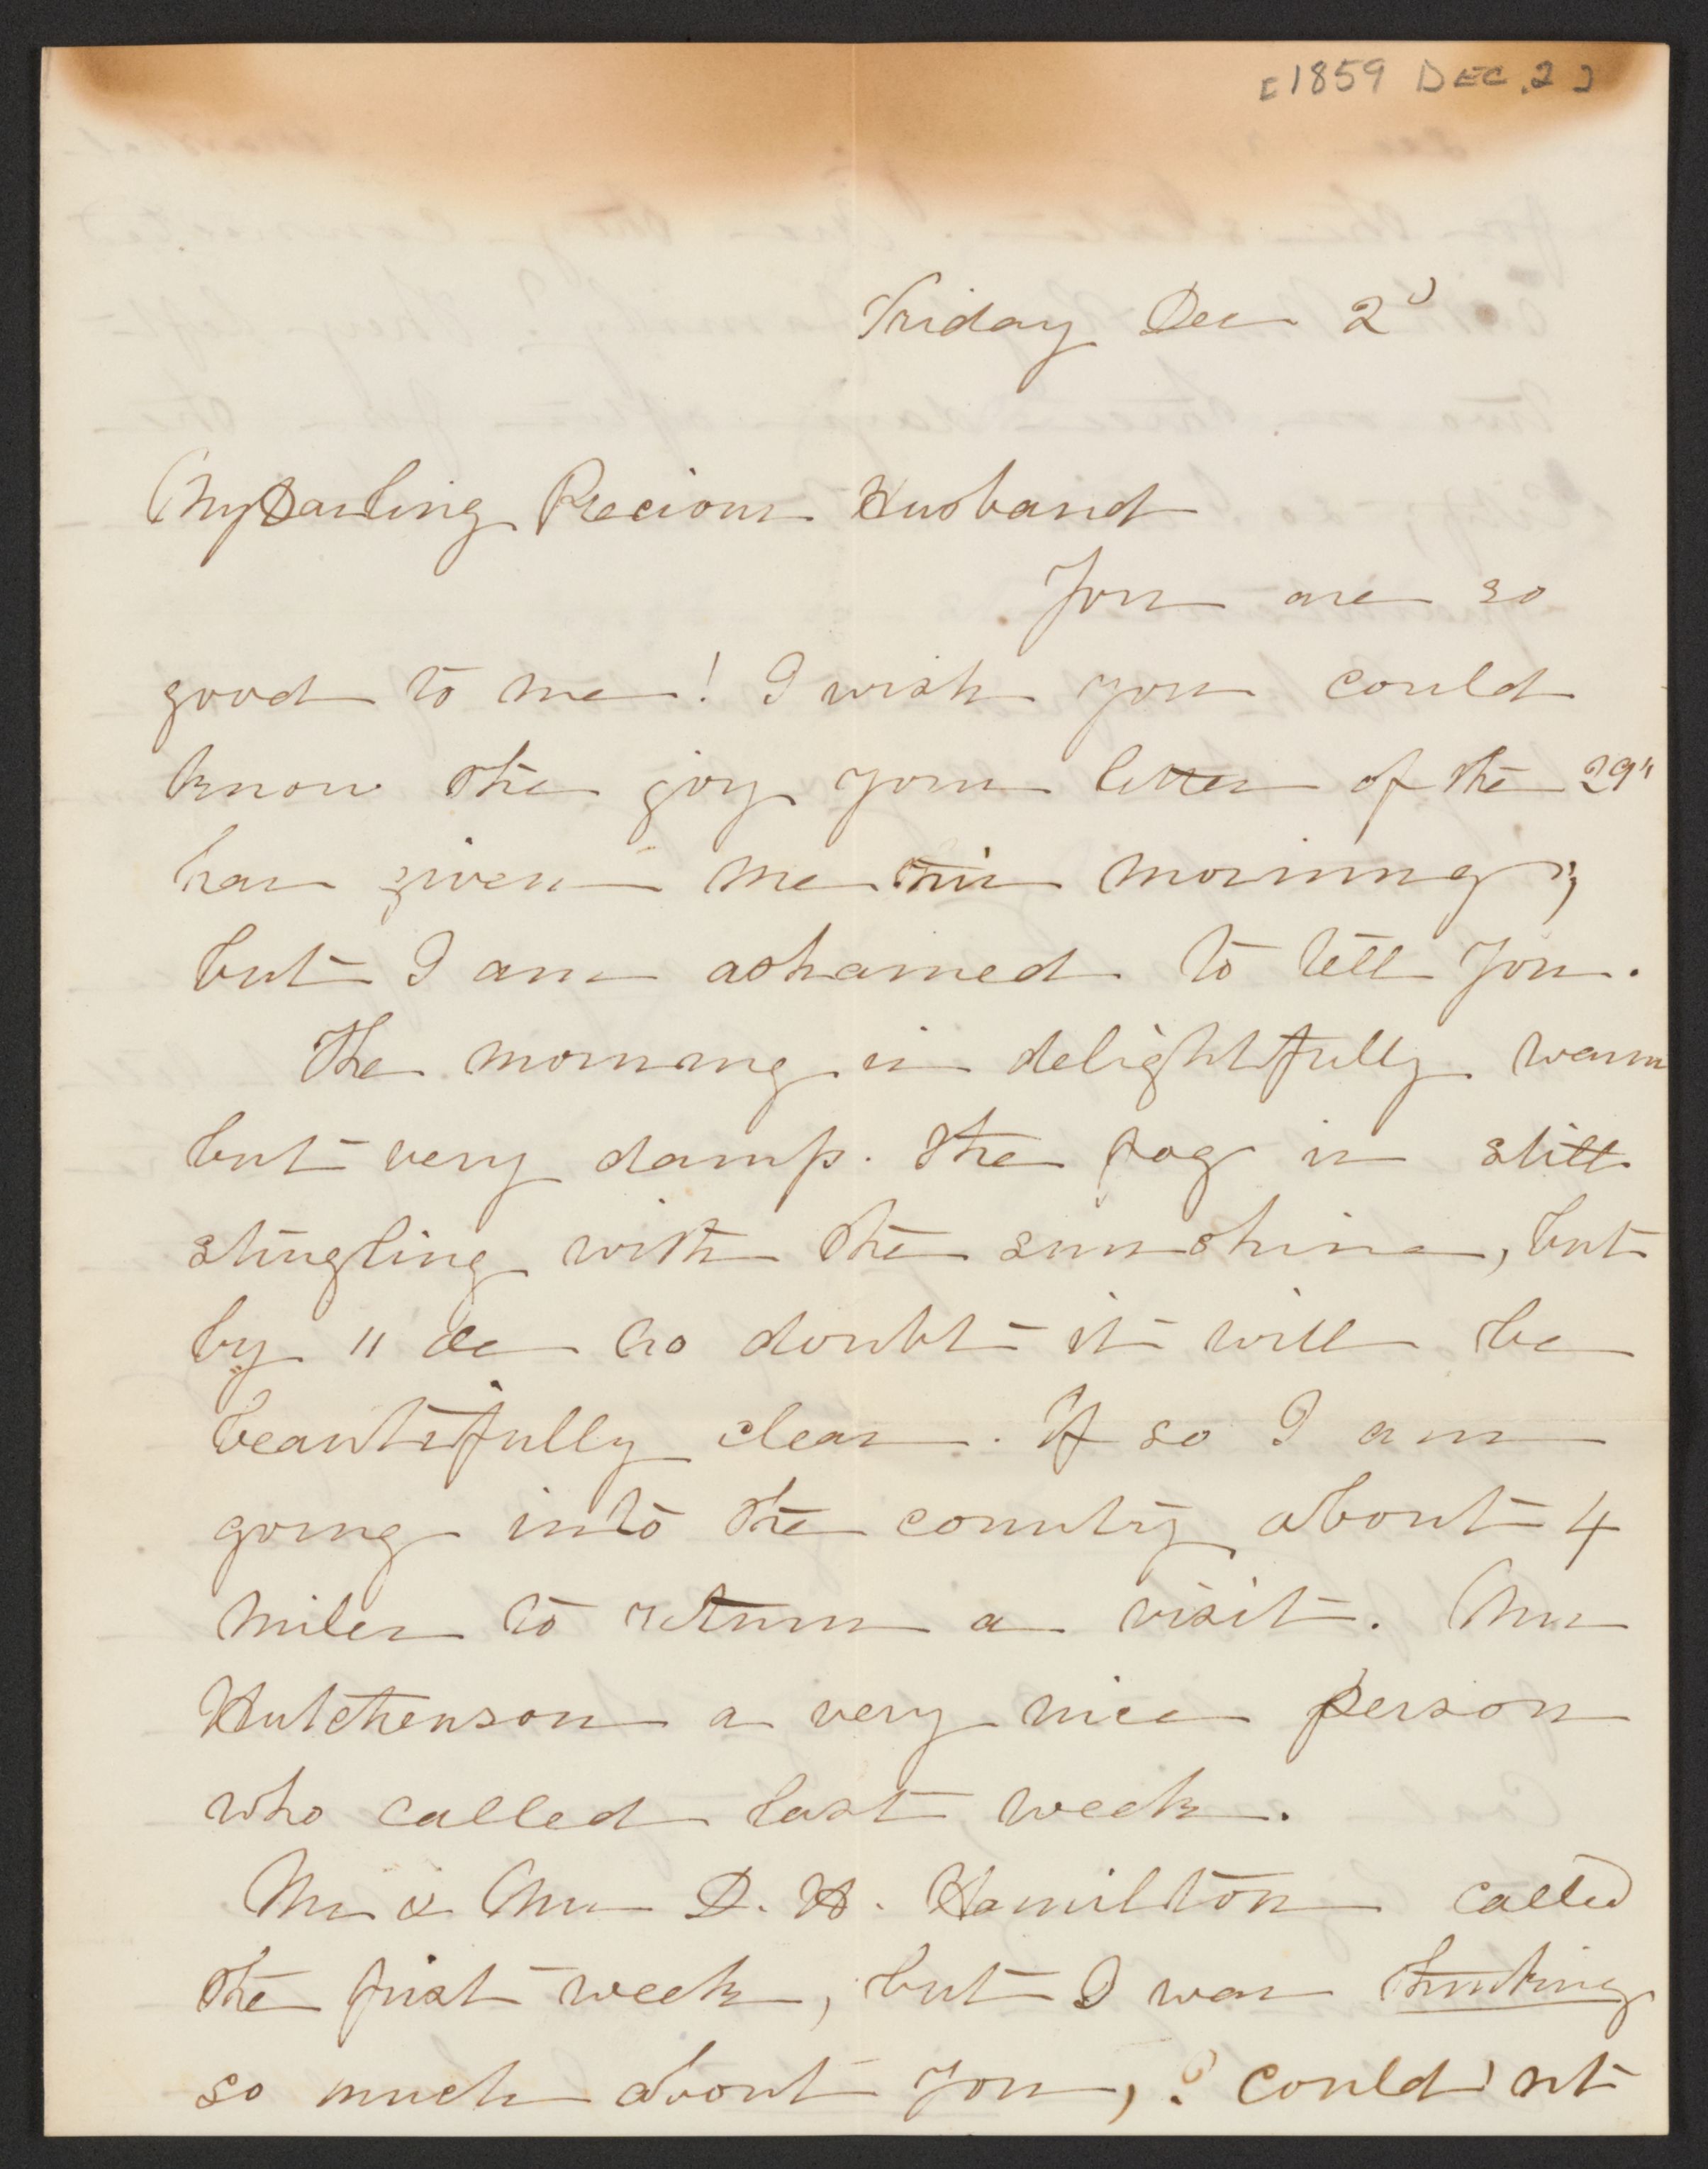 [1859 DEC. 2]
Friday Dec 2d
My Darling Precious Husband
You are so
good to me! I wish you could
know the joy your letter of the 29"
has given me this morning;
but I am ashamed to tell you.
The morning is delightfully warm
but very damp. The fog is still
stingling with the sunshine, but
by 11 oc no doubt it will be
beautifully clear. If so I am
going into the country about 4
miles to return a visit. Mrs
Hutchenson a very nice person
who called last week.
Mr & Mrs D. H. Hamilton called
the first week, but I was thinking
so much about you, I could'nt